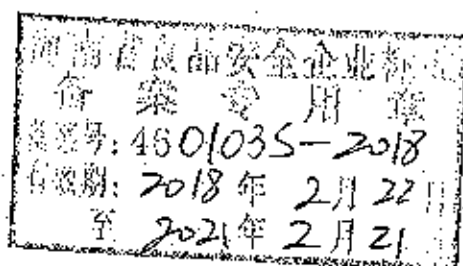 海南省食品安全企业标准
备案专用章
备案号: 4601035-2018
有效期: 2018年2月22日
至 2021年2月21